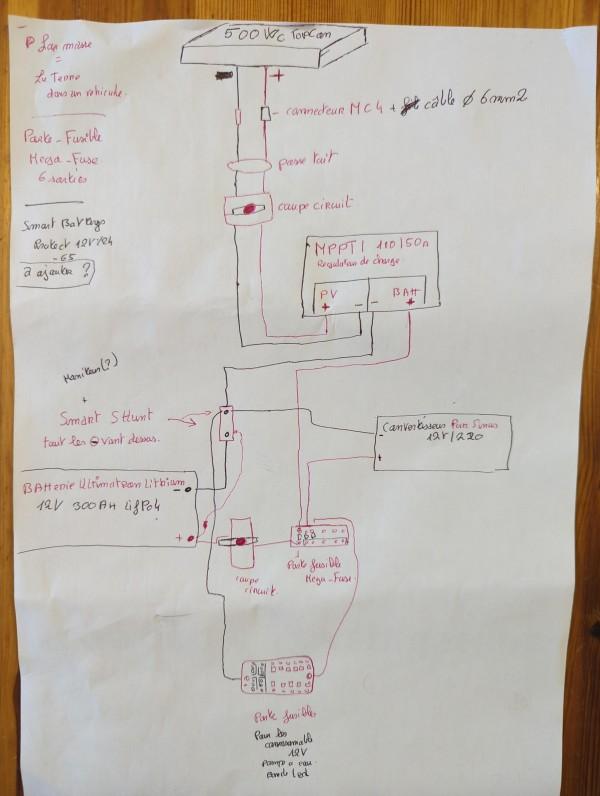 500 Wc TopCon
P La masse
=
La Terre
dans un vehicule.
- +
connecteur MC4 + câble Ø 6mm2
Porte-Fusible
Mega-Fuse
6 sorties
passe toit
coupe circuit
Smart Battery
Protect 12V/24
-65
à ajouter ?
MPPT 110/50A
Regulateur de charge
PV BAtt
+ - - +
Moniteur (?)
+
Smart SHunt
tout les ⊖ vont dessus.
Convertisseur Pur Sinus
12V/220
-
+
BAtterie Ultimatron Lithium
12V 300AH LifPo4
-
+
coupe
circuit.
Porte fusible
Mega-Fuse.
Porte fusibles
Pour les
consommable
12V
Pompe a eau
Bande Led